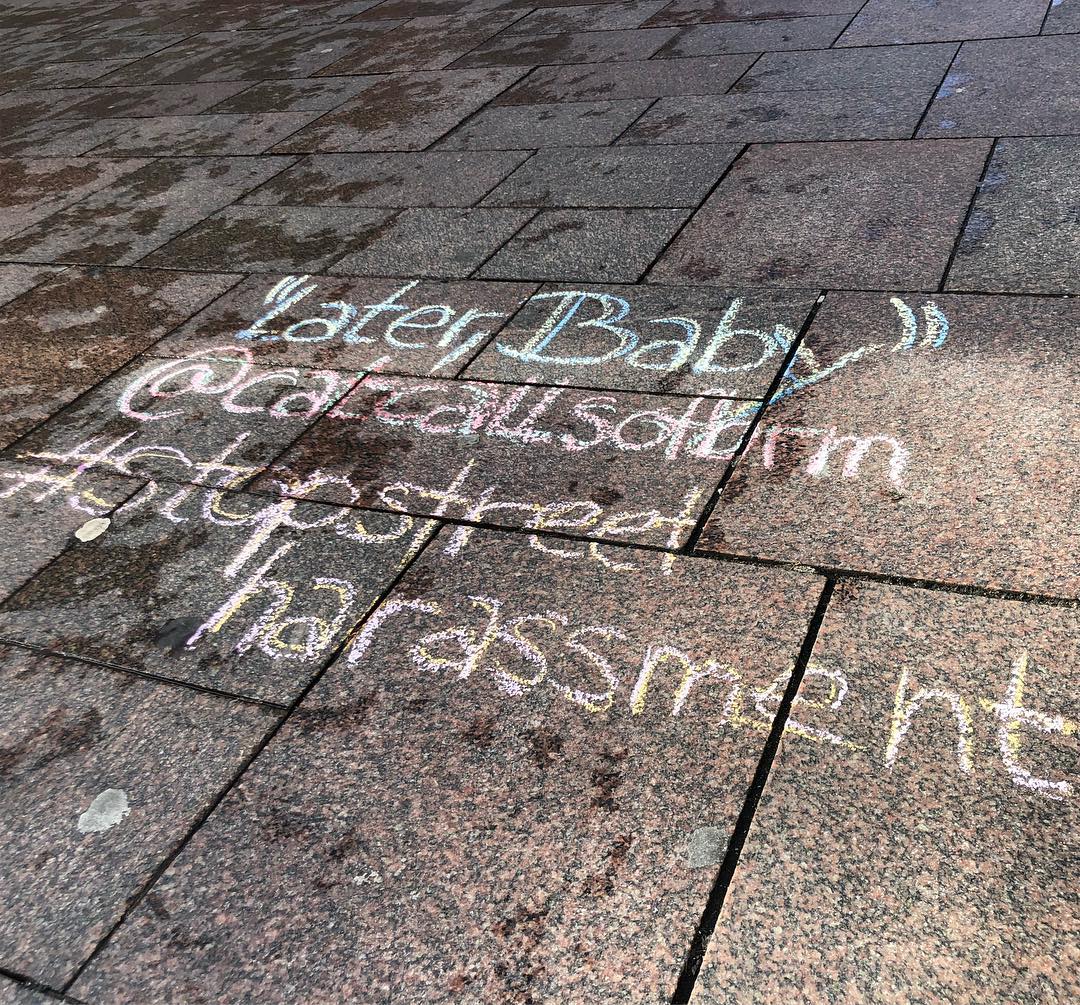 "Later, Baby"
@catcallsofbrm
#stopstreet
harassment